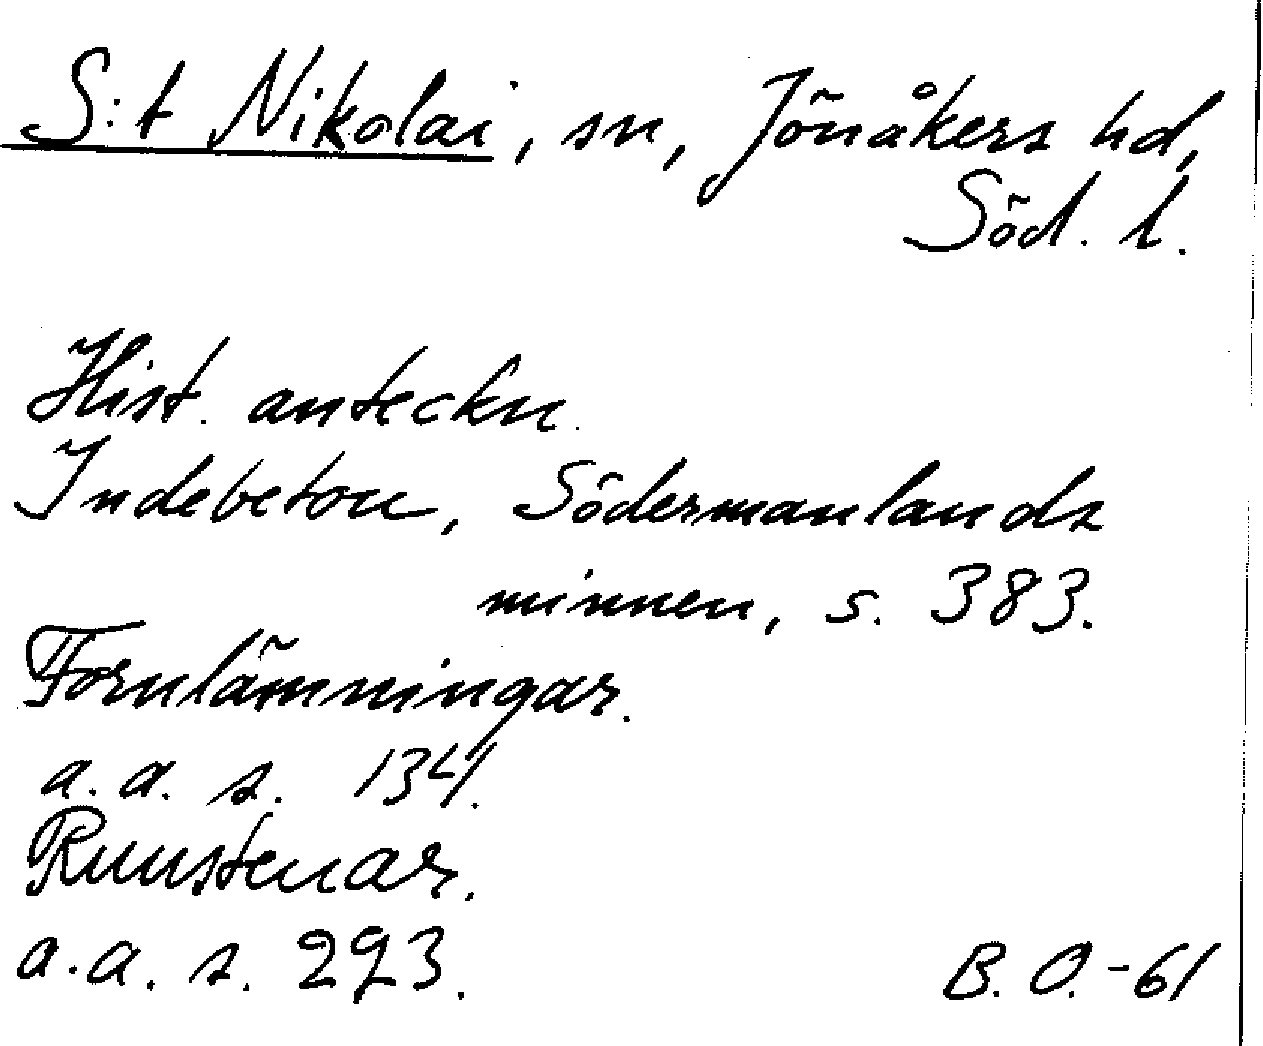 S:t Nikolai, sn, Jönåkers hd,
Söd. l.
Hist. anteckn.
Indebetou, Södermanlands
minnen, s. 383.
Fornlämningar.
a.a. s. 134.
Runstenar.
a.a. s. 293.
B.O.-61